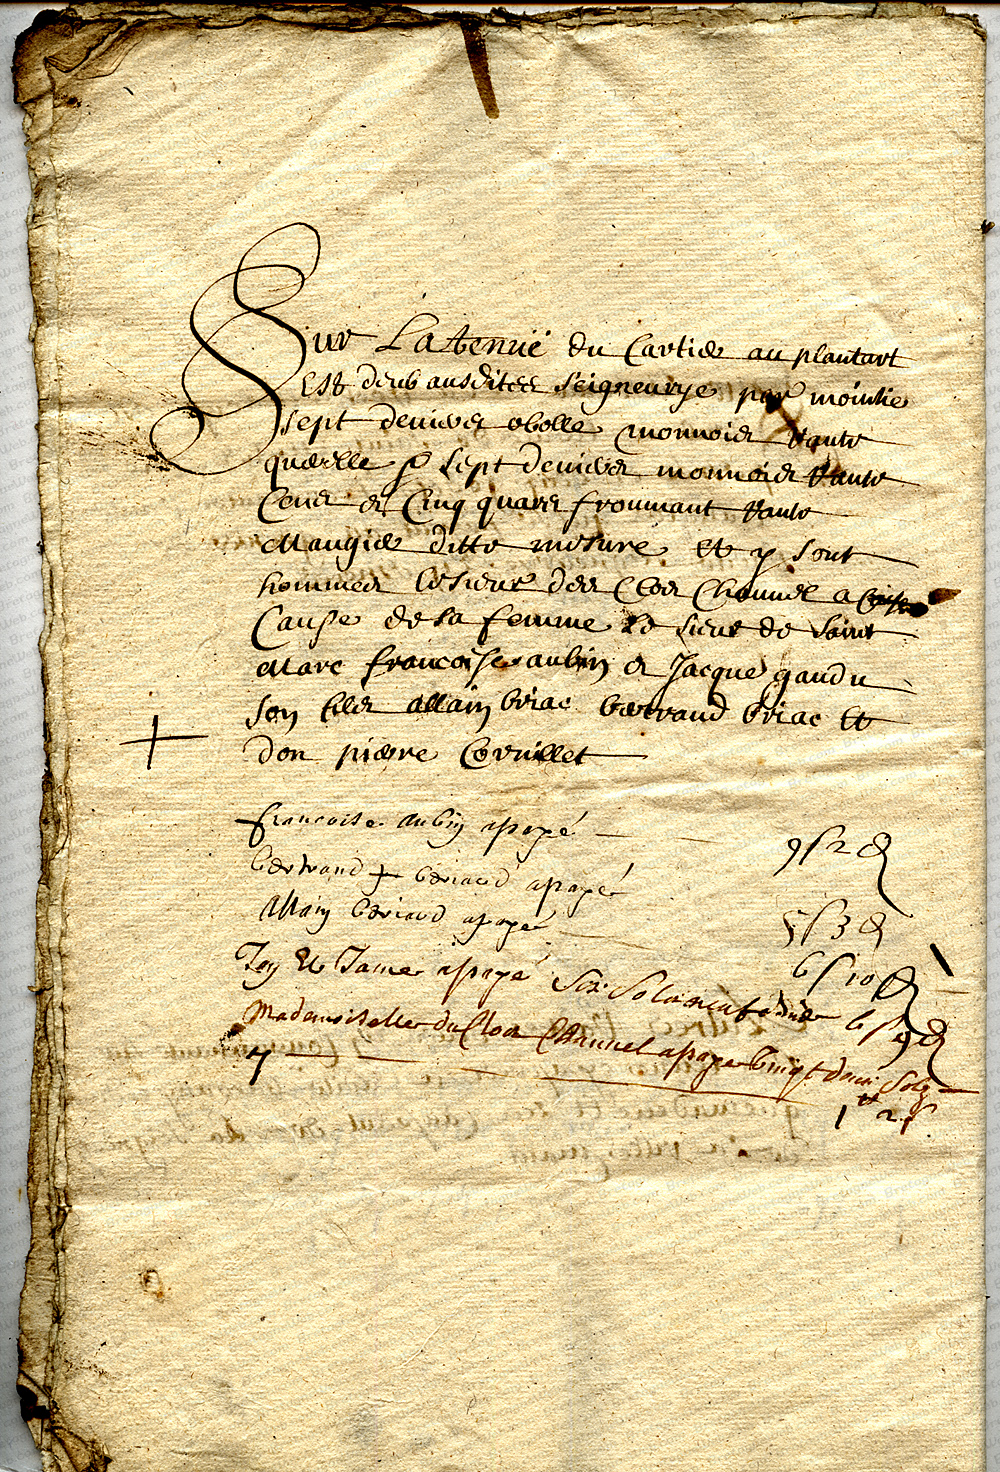 Sur La tenuë du Cartier au plantart
Est deub ausdittes seigneurye par moittie
sept deniers obolle monnoies
querelle p sept deniers monnoies
Cens et Cinq quars froumant
Maugier ditte mesure Et y sont
hommes le sieur des Clos Chauvel a
Cause de sa femme Le sieur de Saint
Marc francoise aubin et Jacque gaudu
son fils allain briac bertrand briac Et
don pierre Corvillet
francoise aubin a payé 9 s 2 d
bertrand briand a payé
Allain briand a payé 5 s 3 d
a payé 6 s 10 d
6 s 9 d
Madamoiselle du Clos Chauvel a paye vingt deux Solz
1 tt 2 s